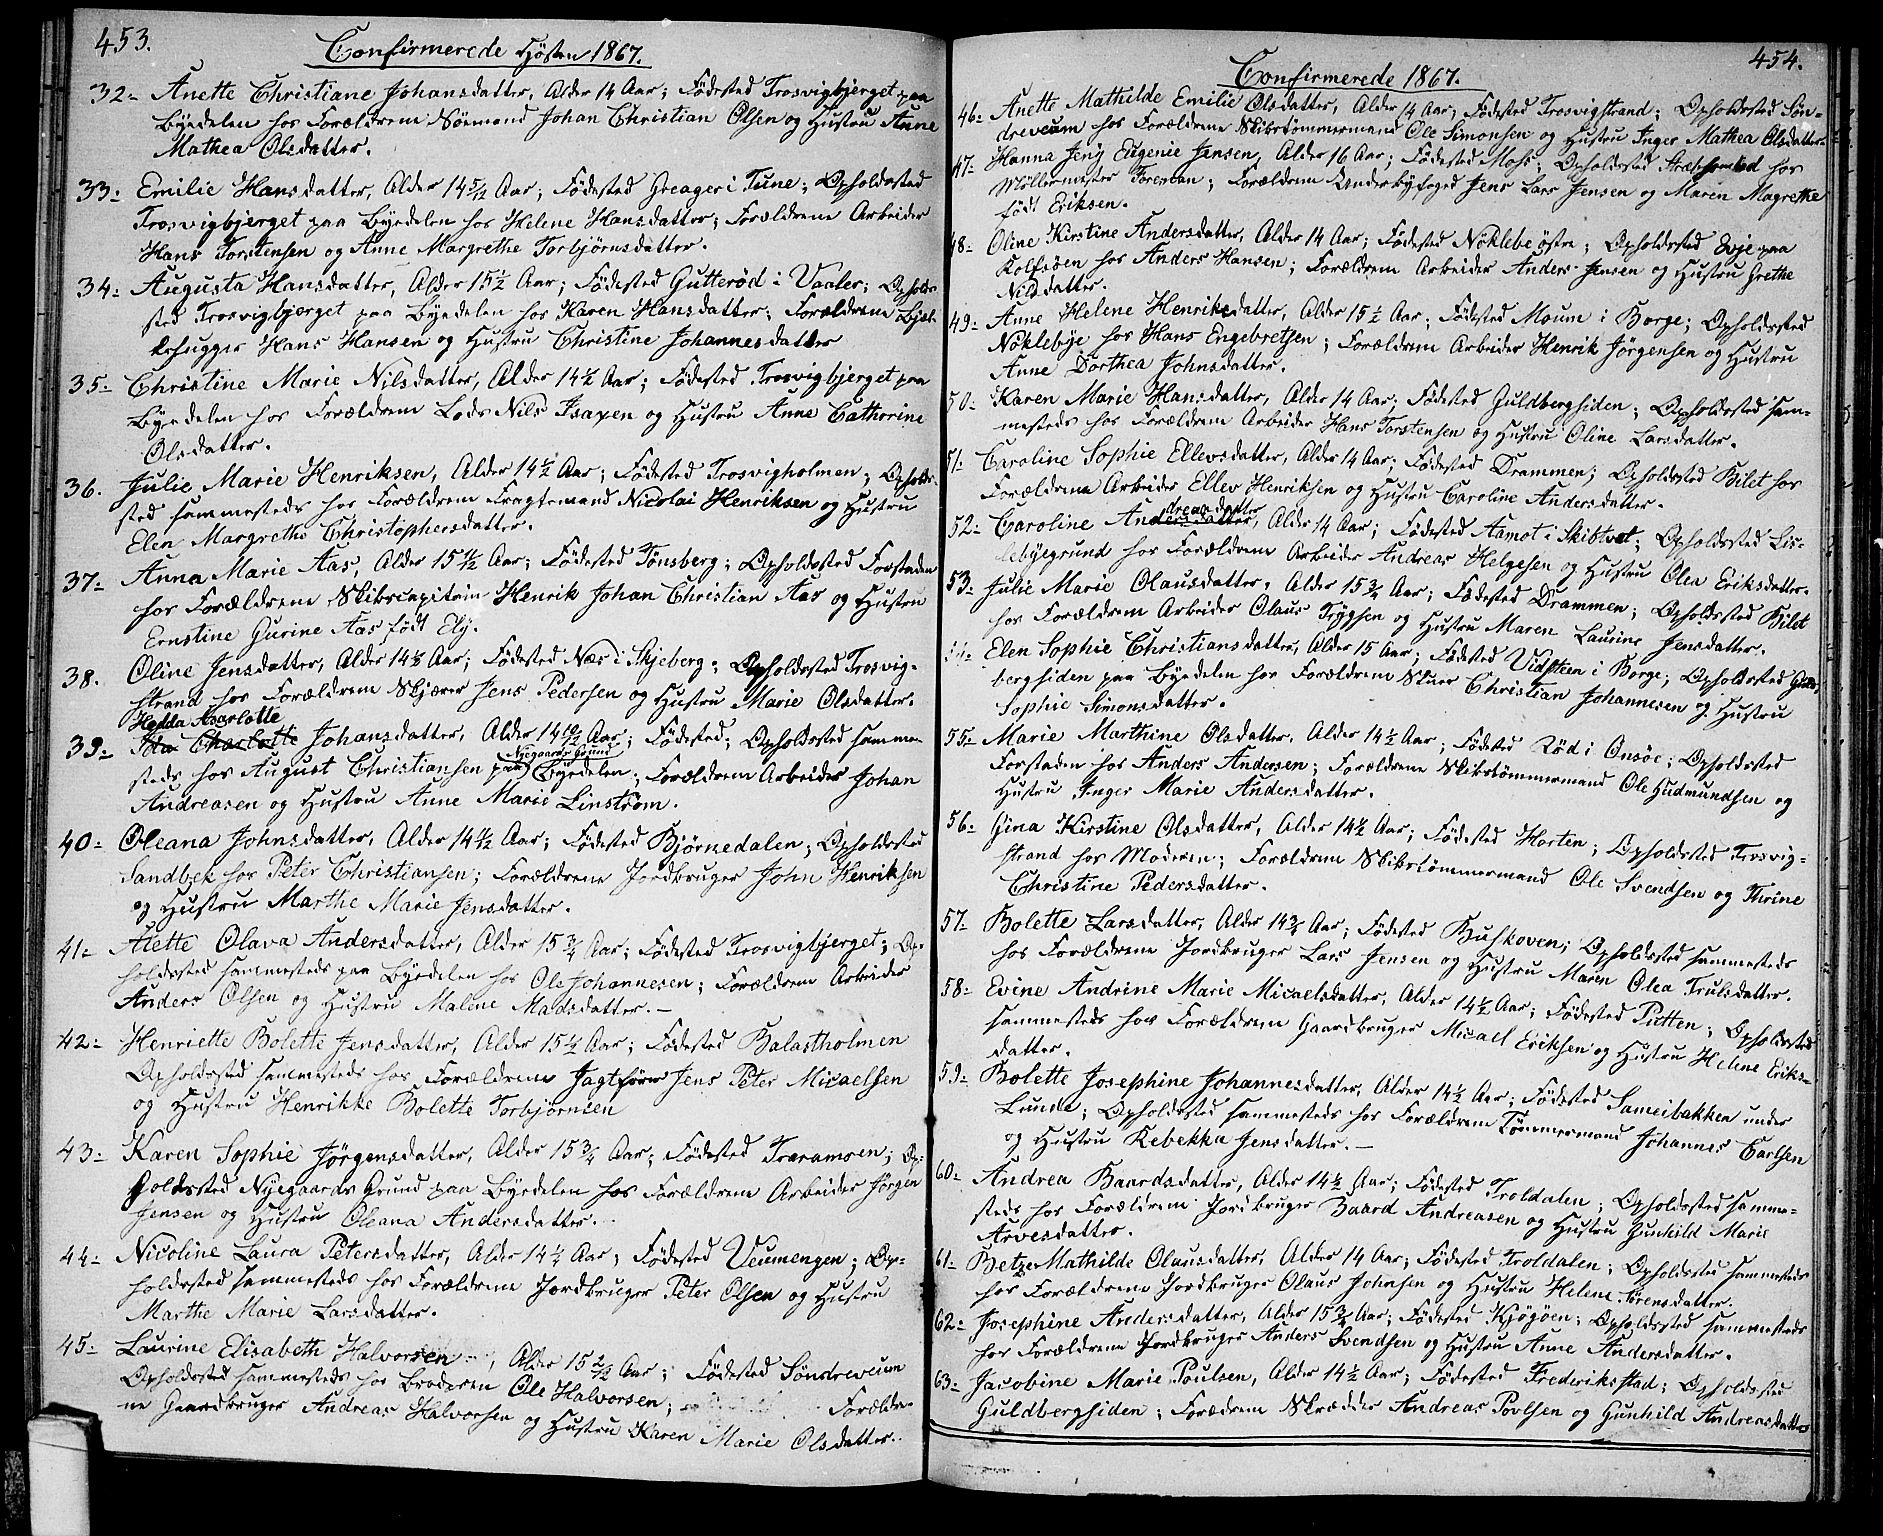 453.
Confirmerede Høsten 1867.
32- Anette Christiane Johansdatter, Alder 14 Aar; Fødested Trosvigbjerget paa
Byedelen hos Forældrene Sömand Johan Christian Olsen og Hustru Anne
Mathea Olsdatter.
33- Emilie Hansdatter, Alder 14 5/12 Aar; Födested Greager i Tune; Opholdssted
Trosvigbjerget paa Byedelen hos Helene Hansdatter; Forældrene Arbeider
Hans Torstensen og Anne Margrethe Torbjörnsdatter.
34- Augusta Hansdatter, Alder 15½ Aar; Födested Gutteröd i Vaaler; Opholds-
sted Trosvigbjerget paa Byedelen hos Karen Hansdatter; Forældrene Bjel-
kehugger Hans Hansen og Hustru Christine Johannesdatter
35- Christine Marie Nilsdatter, Alder 14½ Aar; Födested Trosvigbjerget paa
Byedelen hos Forældrene Lods Nils Isaxen og Hustru Anne Cathorine
Olsdatter.
36. Julie Marie Henriksen, Alder 14½ Aar; Födested Trosvigholmen; Opholds-
sted sammesteds hos Forældrene Fragtemand Nicolai Henriksen og Hustru
Elen Margrethe Christophersdatter.
37- Anna Marie Aas, Alder 15 Aar; Födested Tönsberg; Opholdssted Forstaden
hos Forældrene Skibscapitain Henrik Johan Christian Aas og Hustru
Ernstine Gurine Aas født Ely.
38. Oline Jensdatter, Alder 14½ Aar; Födested Næs i Skjeberg; Opholdssted Trosvig-
strand hos Forældrene Skjærer Jens Pedersen og Hustru Marie Olsdatter.
Hedda Charlotte
39- Ida Charlotte Johansdatter, Alder 14 10/12 Aar; Födested; Opholdssted samme-
Nygaards Grund
steds hos August Christiansen paa Byedelen; Forældrene Arbeider Johan
Andreasen og Hustru Anne Marie Linström.
40- Oleana Johnsdatter, Alder 14 Aar; Födested Bjørnedalen; Opholdssted
Sandbek hos Peter Christiansen; Forældrene Jordbruger John Henriksen
og Hustru Marthe Marie Jensdatter.
41- Alette Olava Andersdatter, Alder 15¾ Aar; Födested Trosvigbjerget; Op-
holdssted sammesteds paa Byedelen hos Ole Johannesen; Forældrene Arbeider
Anders Olsen og Hustru Malene Madsdatter.—
42- Henriette Bolette Jensdatter, Alder 15 Aar; Födested Balastholmen
Opholdssted sammesteds hos Forældrene Jagtfører Jens Peter Micaelsen
og Hustru Henrikke Bolette Torbjørnsen
43- Karen Sophie Jörgensdatter, Alder 15¾ Aar; Födested Traramoen; Op-
holdssted Nyegaards Grund paa Byedelen hos Forældrene Arbeider Jörgen
Jensen og Hustru Oleana Andersdatter.
44- Nicoline Laura Petersdatter, Alder 14 Aar; Födested Veumengen; Op-
holdssted sammesteds hos Forældrene Jordbruger Peter Olsen og Hustru
Marthe Marie Larsdatter.
45- Laurine Elisabeth Halvorsen, Alder 15 2/12 Aar; Födested Söndreveum
Opholdssted sammesteds hos Broderen Ole Halvorsen; Forældre-
ne Gaardbruger Andreas Halvorsen og Hustru Karen Marie Olsdatter.
454.
Confirmerede 1867.
46- Anette Mathilde Emilie Olsdatter, Alder 14 Aar; Födested Trosvigstrand; Opholdssted Sön-
dreveum hos Forældrene Skibstömmermand Ole Simonsen og Hustru Inger Mathea Olsdatter.
47- Hanna Jeny Eugenie Jensen, Alder 16 Aar; Födested Moss; Opholdssted hos
Möllermester Foreman; Forældrene Underbyfoged Jens Lars Jensen og Maren Magrethe
født Eriksen.
48- Oline Kirstine Andersdatter, Alder 14 Aar; Födested Nöklebe östre; Opholdssted Evje paa
Rolfsöen hos Anders Hansen; Forældrene Arbeider Anders Jensen og Hustru Grethe
Nilsdatter.
49- Anne Helene Henriksdatter, Alder 15½ Aar; Födested Moum i Borge; Opholdssted
Nöklebye hos Hans Engebretsen; Forældrene Arbeider Henrik Jörgensen og Hustru
Anne Dorthea Johnsdatter.
50- Karen Marie Hansdatter, Alder 14 Aar; Födested Guldbergsiden; Opholdssted sam-
mesteds hos Forældrene Arbeider Hans Torstensen og Hustru Oline Larsdatter.
51- Caroline Sophie Ellevsdatter, Alder 14 Aar; Födested Drammen; Opholdssted Bilet hos
Forældrene Arbeider Ellev Henriksen og Hustru Caroline Andersdatter.
dreasdatter
52- Caroline Andersdatter, Alder 14 Aar; Födested Aamot i Skibtvet; Opholdssted Lis-
lebyegrund hos Forældrene Arbeider Andreas Helgesen og Hustru Olea Eriksdatter.
53- Julie Marie Olausdatter, Alder 15¾ Aar; Födested Drammen; Opholdssted Bilet
hos Forældrene Arbeider Olaus Trypsen og Hustru Maren Laurine Jensdatter.
54- Elen Sophie Christiansdatter, Alder 15 Aar; Födested Vidsteen i Borge; Opholdssted Guld-
bergsiden paa Byedelen hos Forældrene Skuer Christian Johannesen og Hustru
Sophie Simonsdatter.
55- Marie Marthine Olsdatter, Alder 14½ Aar; Födested Röd i Onsöe; Opholdssted
Forstaden hos Anders Andersen; Forældrene Skibstömmermand Ole Gudmundsen og
Hustru Inger Marie Andersdatter.
56- Gina Kirstine Olsdatter, Alder 14½ Aar; Födested Horten; Opholdssted Trosvig-
strand hos Moderen; Forældrene Skibstömmermand Ole Svendsen og Thrine
Christine Pedersdatter.
57- Bolette Larsdatter, Alder 14¾ Aar; Födested Buskoven; Opholdssted sammesteds
hos Forældrene Jordbruger Lars Jensen og Hustru Maren Olea Trulsdatter.
58- Evine Andrine Marie Micaelsdatter, Alder 14½ Aar; Födested Putten; Opholdssted
sammesteds hos Forældrene Gaardbruger Micael Eriksen og Hustru Helene Eriks-
datter.
59- Bolette Josephine Johannesdatter, Alder 14½ Aar; Födested Sameibakken under
Lunde; Opholdssted sammesteds hos Forældrene Tömmermand Johannes Carlsen
og Hustru Rebekka Jensdatter.—
60- Andrea Baardsdatter, Alder 14½ Aar; Födested Troldalen; Opholdssted samme-
steds hos Forældrene Jordbruger Baard Andreasen og Hustru Gunhild Marie
Arvesdatter.
61- Betzer Mathilde Olausdatter, Alder 14 Aar; Födested Troldalen; Opholdssted sammesteds
hos Forældrene Jordbruger Olaus Johnsen og Hustru Helene Sörensdatter.
62- Josephine Andersdatter, Alder 15¾ Aar; Födested Kjøgöen; Opholdssted sammesteds
hos Forældrene Jordbruger Anders Svendsen og Hustru Anne Andersdatter.
63- Jacobine Marie Poulsen, Alder 14½ Aar; Födested Frederikstad; Opholdssted
Guldbergsiden; Forædrene Skrædder Andreas Povlsen og Gunhild Andreasdatter